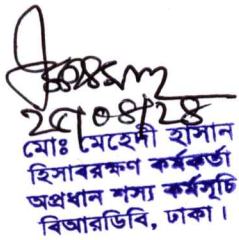 ২৫/০৪/২৪
মোঃ মেহেদী হাসান
হিসাবরক্ষণ কর্মকর্তা
অপ্রধান শস্য কর্মসূচি
বিআরডিবি, ঢাকা।